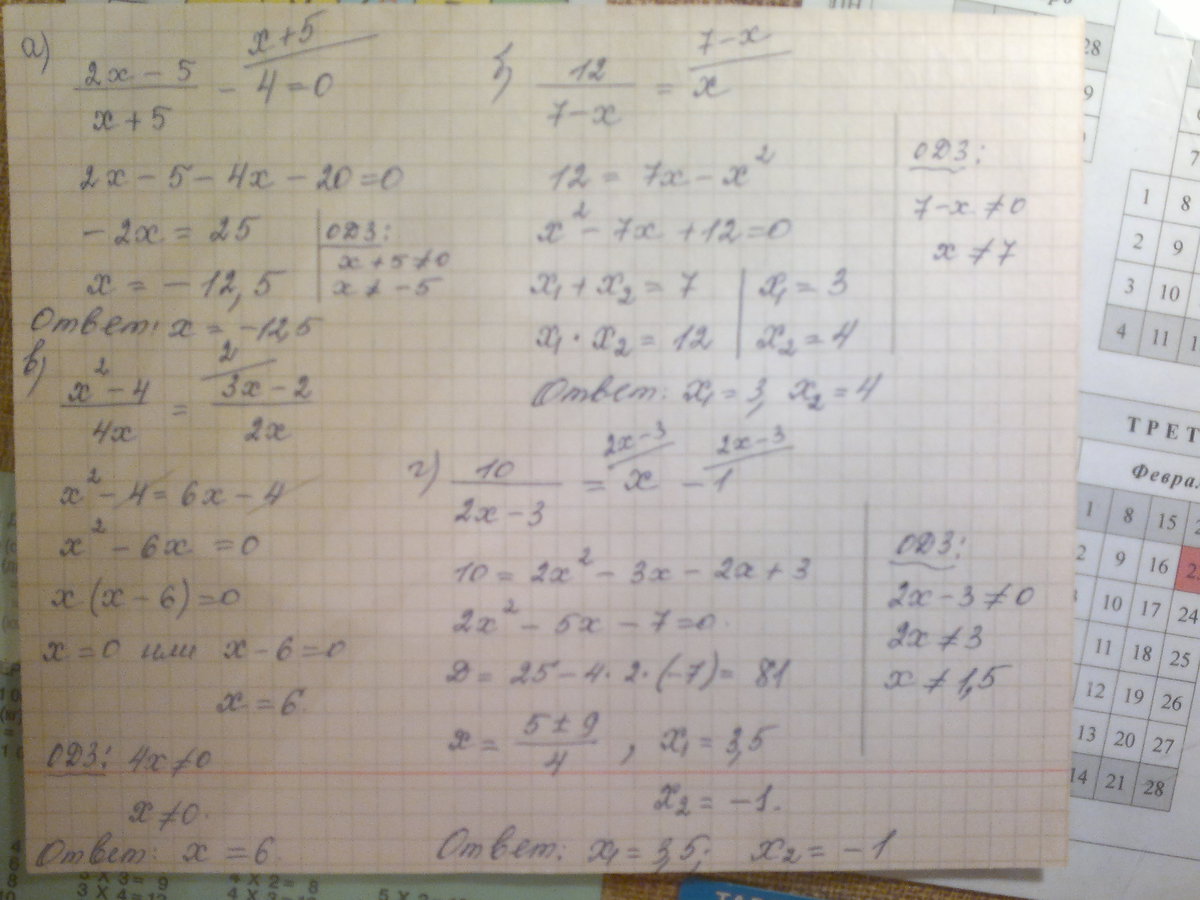 а) (2x − 5)/(x + 5) − 4 = 0   x+5
2x − 5 − 4x − 20 = 0
−2x = 25
x = −12,5
ОДЗ:
x + 5 ≠ 0
x ≠ −5
Ответ: x = −12,5
б) 12/(7−x) = x   7−x
12 = 7x − x²
x² − 7x + 12 = 0
x₁ + x₂ = 7
x₁ · x₂ = 12
x₁ = 3
x₂ = 4
ОДЗ:
7−x ≠ 0
x ≠ 7
Ответ: x₁ = 3, x₂ = 4
в) (x² − 4)/4x = (3x − 2)/2x   2
x² − 4 = 6x − 4
x² − 6x = 0
x(x − 6) = 0
x = 0 или x − 6 = 0
x = 6.
ОДЗ: 4x ≠ 0
x ≠ 0.
Ответ: x = 6.
г) 10/(2x − 3) = x − 1   2x−3   2x−3
10 = 2x² − 3x − 2x + 3
2x² − 5x − 7 = 0.
D = 25 − 4·2·(−7) = 81
x = (5 ± 9)/4 , x₁ = 3,5
x₂ = −1.
ОДЗ:
2x − 3 ≠ 0
2x ≠ 3
x ≠ 1,5
Ответ: x₁ = 3,5; x₂ = −1
28
1 8
2 9
3 10
4 11
ТРЕТ
Феврал
1 8 15
2 9 16
10 17 24
11 18 25
12 19 26
13 20 27
14 21 28
3 X 3 = 9
4 X 2 = 8
3 X 4 = 12